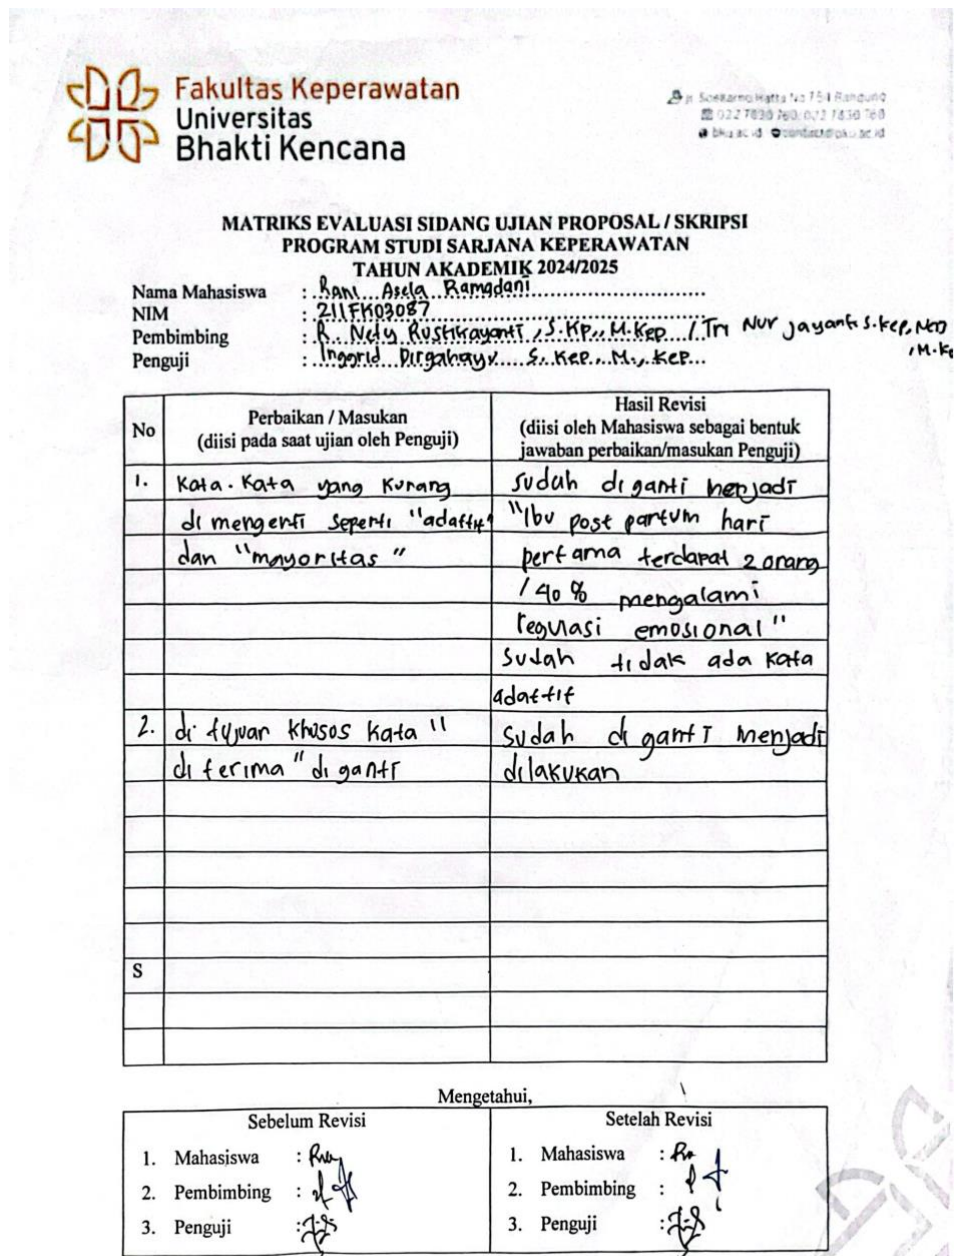 Fakultas Keperawatan
Universitas
Bhakti Kencana
Jl. Soekarno Hatta No 754 Bandung
022 7830 760, 022 7830 768
bku.ac.id contact@bku.ac.id
MATRIKS EVALUASI SIDANG UJIAN PROPOSAL / SKRIPSI
PROGRAM STUDI SARJANA KEPERAWATAN
TAHUN AKADEMIK 2024/2025
Nama Mahasiswa : Rani Asela Ramadani
NIM : 211FK03087
Pembimbing : R. Nety Rustikayanti, S.Kp., M.Kep / Tri Nur Jayanti S.Kep, Ners, M.Kep
Penguji : Inggrid Dirgahayu S.Kep., M., Kep
No
Perbaikan / Masukan
(diisi pada saat ujian oleh Penguji)
Hasil Revisi
(diisi oleh Mahasiswa sebagai bentuk
jawaban perbaikan/masukan Penguji)
1. Kata-Kata yang Kurang
di mengerti seperti "adaftif"
dan "mayoritas"
sudah di ganti menjadi
"Ibu post partum hari
pertama terdapat 2 orang
/ 40 % mengalami
regulasi emosional"
sudah tidak ada kata
adaftif
2. di tujuan khusos kata "
di terima" di ganti
sudah di ganti menjadi
dilakukan
S
Mengetahui,
Sebelum Revisi
1. Mahasiswa :
2. Pembimbing :
3. Penguji :
Setelah Revisi
1. Mahasiswa :
2. Pembimbing :
3. Penguji :